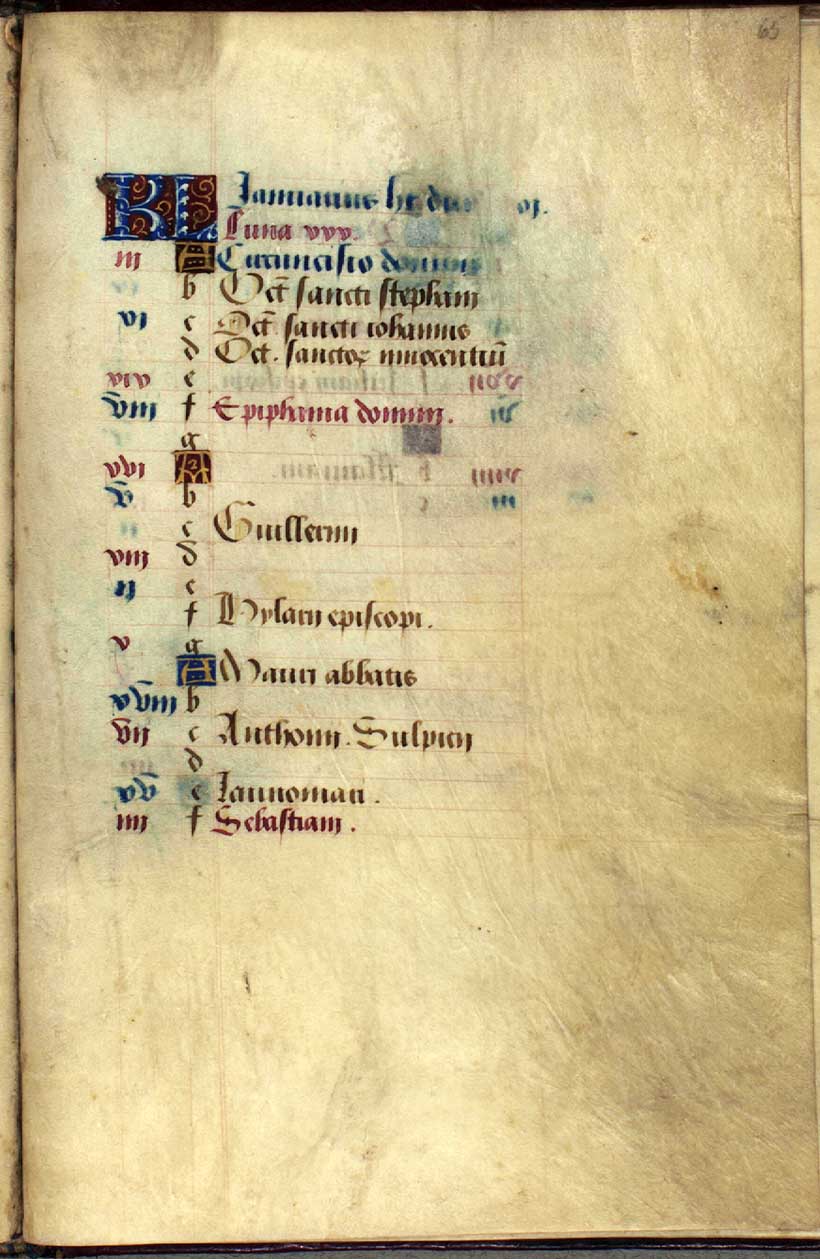 65
KL Januarius ht dies xxxj.
Luna xxx.
iii A Circuncisio domini
b Oct sancti stephani
xi c Oct sancti iohannis
d Oct. sanctoꝝ innocentiū
xix e
viii f Epiphania domini.
g
xvi A
v b
c Guillermi
xiii d
ii e
f Hylarii episcopi.
x g
A Mauri abbatis
xviii b
vii c Anthonii. Sulpicii
d
xv e Launomari.
iiii f Sebastiani.